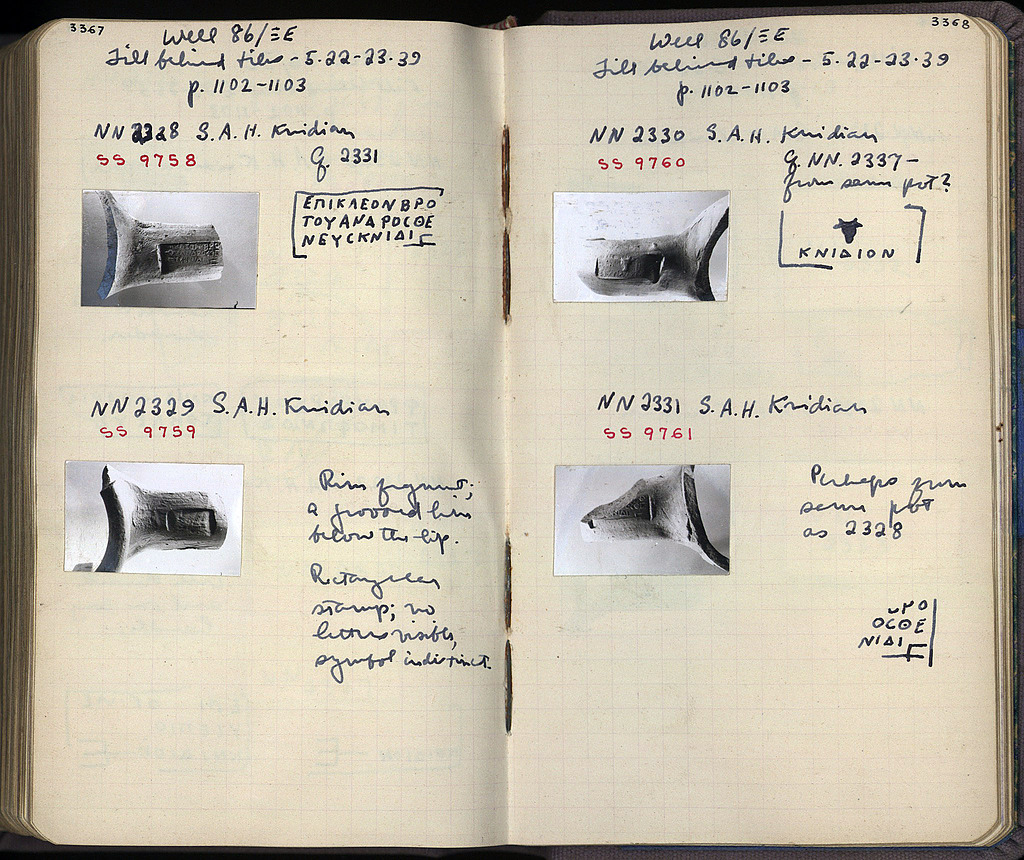 3367
Well 86/ΞE
Fill behind tiles - 5-22-23-39
p. 1102-1103
NN 2328 S.A.H. Knidian
SS 9758
Cf. 2331
ΕΠΙΚΛΕΟΝΒΡΟ
ΤΟΥΑΝΔΡΟCΘΕ
ΝΕΥCΚΝΙΔΙ
NN 2329 S.A.H. Knidian
SS 9759
Rim fragment;
a grooved line
below the lip.
Rectangular
stamp; no
letters visible,
symbol indistinct.
3368
Well 86/ΞE
Fill behind tiles - 5-22-23-39
p. 1102-1103
NN 2330 S.A.H. Knidian
SS 9760
Cf. NN. 2337 -
from same pot?
ΚΝΙΔΙΟΝ
NN 2331 S.A.H. Knidian
SS 9761
Perhaps from
same pot
as 2328
ΡΟ
ΟCΘΕ
ΝΙΔΙ